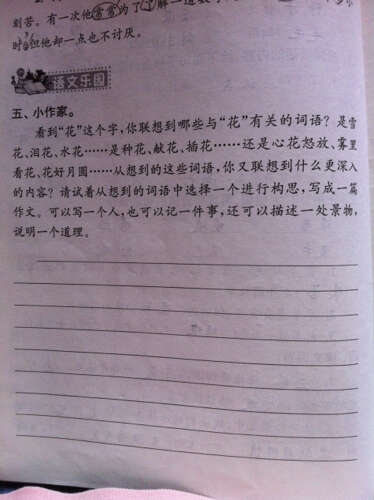 刻苦。有一次他常常为了了解一道数学
时,但他却一点也不讨厌。
语文乐园
五、小作家。
看到“花”这个字,你联想到哪些与“花”有关的词语?是雪
花、泪花、水花……是种花、献花、插花……还是心花怒放、雾里
看花、花好月圆……从想到的这些词语,你又联想到什么更深入
的内容?请试着从想到的词语中选择一个进行构思,写成一篇
作文。可以写一个人,也可以记一件事,还可以描述一处景物,
说明一个道理。